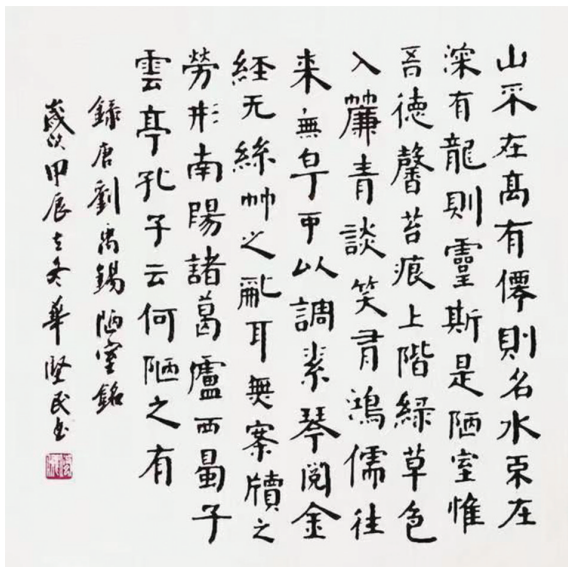 山不在高有僊則名水不在
深有龍則靈斯是陋室惟
吾德馨苔痕上階緑草色
入簾青談笑有鴻儒往
来無白丁可以調素琴閱金
経无絲竹之亂耳無案牘之
勞形南陽諸葛廬西蜀子
雲亭孔子云何陋之有
録唐劉禹錫陋室銘
歲次甲辰立冬華堅民书